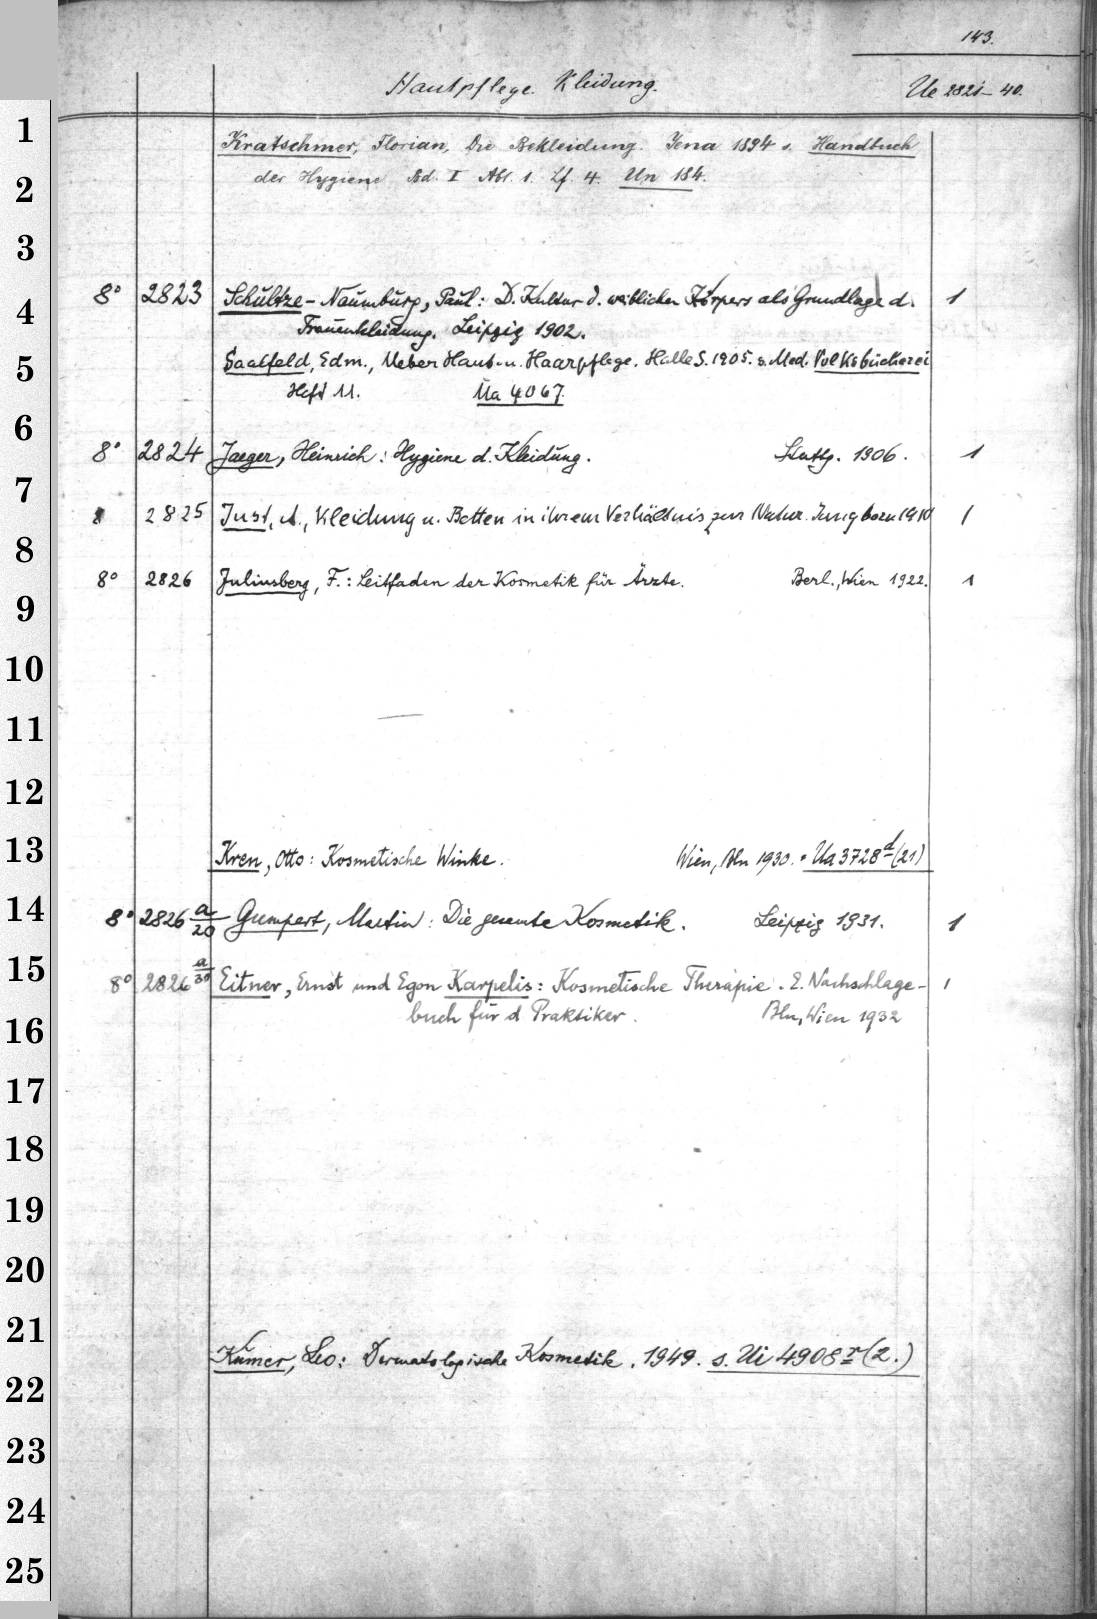 143.
Hautpflege. Kleidung. Ue 2821-40.
1
Kratschmer, Florian, Die Bekleidung. Jena 1894 s. Handbuch
2
der Hygiene Bd. I Abt. 1. Lf. 4. Un 184.
3
8° 2823 Schultze-Naumburg, Paul: D. Kultur d. weiblichen Körpers als Grundlage d. 1
4
Frauenkleidung. Leipzig 1902.
5
Saalfeld, Edm., Ueber Haut- u. Haarpflege. Halle S. 1905. s. Med. Volksbücherei
Heft 11. Ua 4067.
6
8° 2824 Jaeger, Heinrich: Hygiene d. Kleidung. Stuttg. 1906. 1
7
8 2825 Just, A., Kleidung u. Betten in ihrem Verhältnis zur Natur. Jungborn 1910 1
8
8° 2826 Juliusberg, F.: Leitfaden der Kosmetik für Ärzte. Berl., Wien 1922. 1
9
10
11
12
13
Kren, Otto: Kosmetische Winke. Wien, Bln 1930. * Ua 3728 d (21)
14
8° 2826 a/20 Gumpert, Martin: Die gesamte Kosmetik. Leipzig 1931. 1
15
8° 2826 a/30 Eitner, Ernst und Egon Karpelis: Kosmetische Therapie. E. Nachschlage- 1
16
buch für d Praktiker. Bln, Wien 1932
17
18
19
20
21
Kumer, Leo: Dermatologische Kosmetik. 1949. s. Ui 4908 r (2.)
22
23
24
25